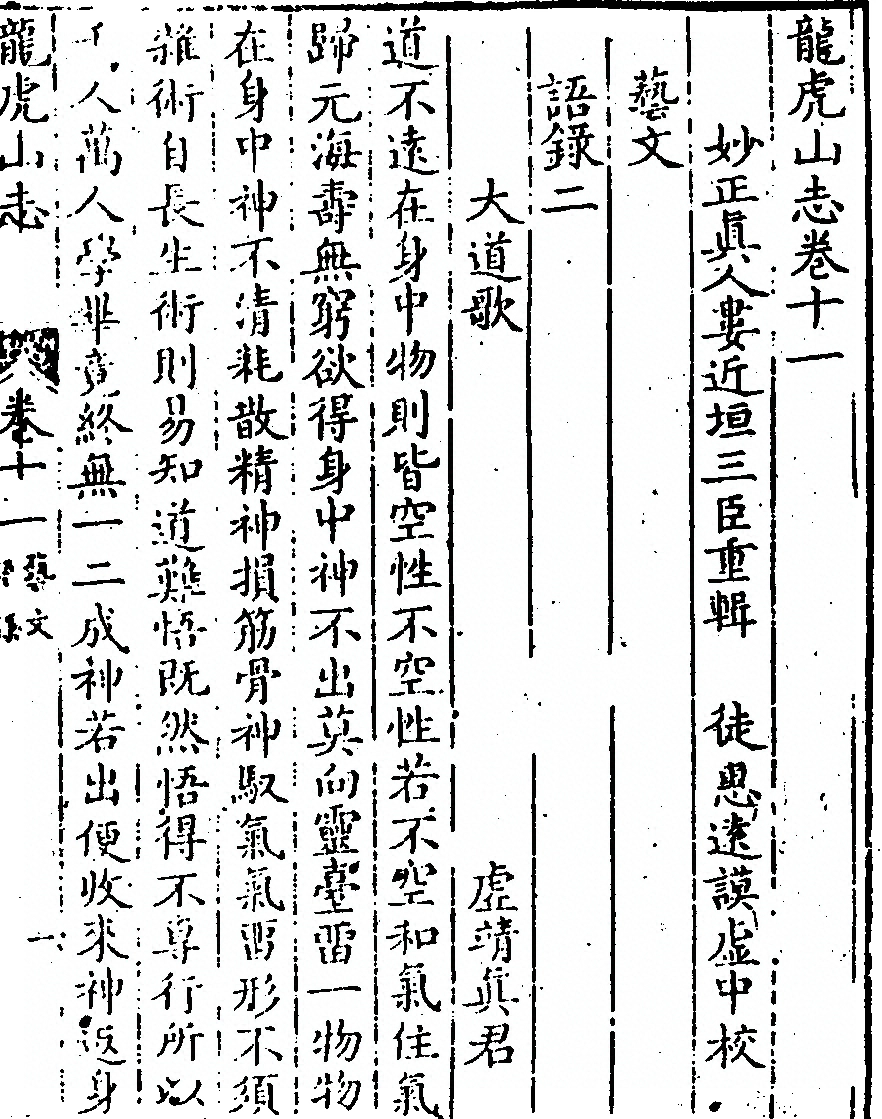 龍虎山志卷十一
妙正眞人婁近垣三臣重輯　徒惠遠謨虛中校
藝文
語錄二
大道歌　虛靖眞君
道不遠在身中物則皆空性不空性若不空和氣住氣
歸元海壽無窮欲得身中神不出莫向靈臺畱一物物
在身中神不清耗散精神損筋骨神馭氣氣畱形不須
雜術自長生術則易知道難悟既然悟得不專行所以
人萬人學畢竟終無一二成神若出便收來神返身
龍虎山志　卷十一　藝文　一